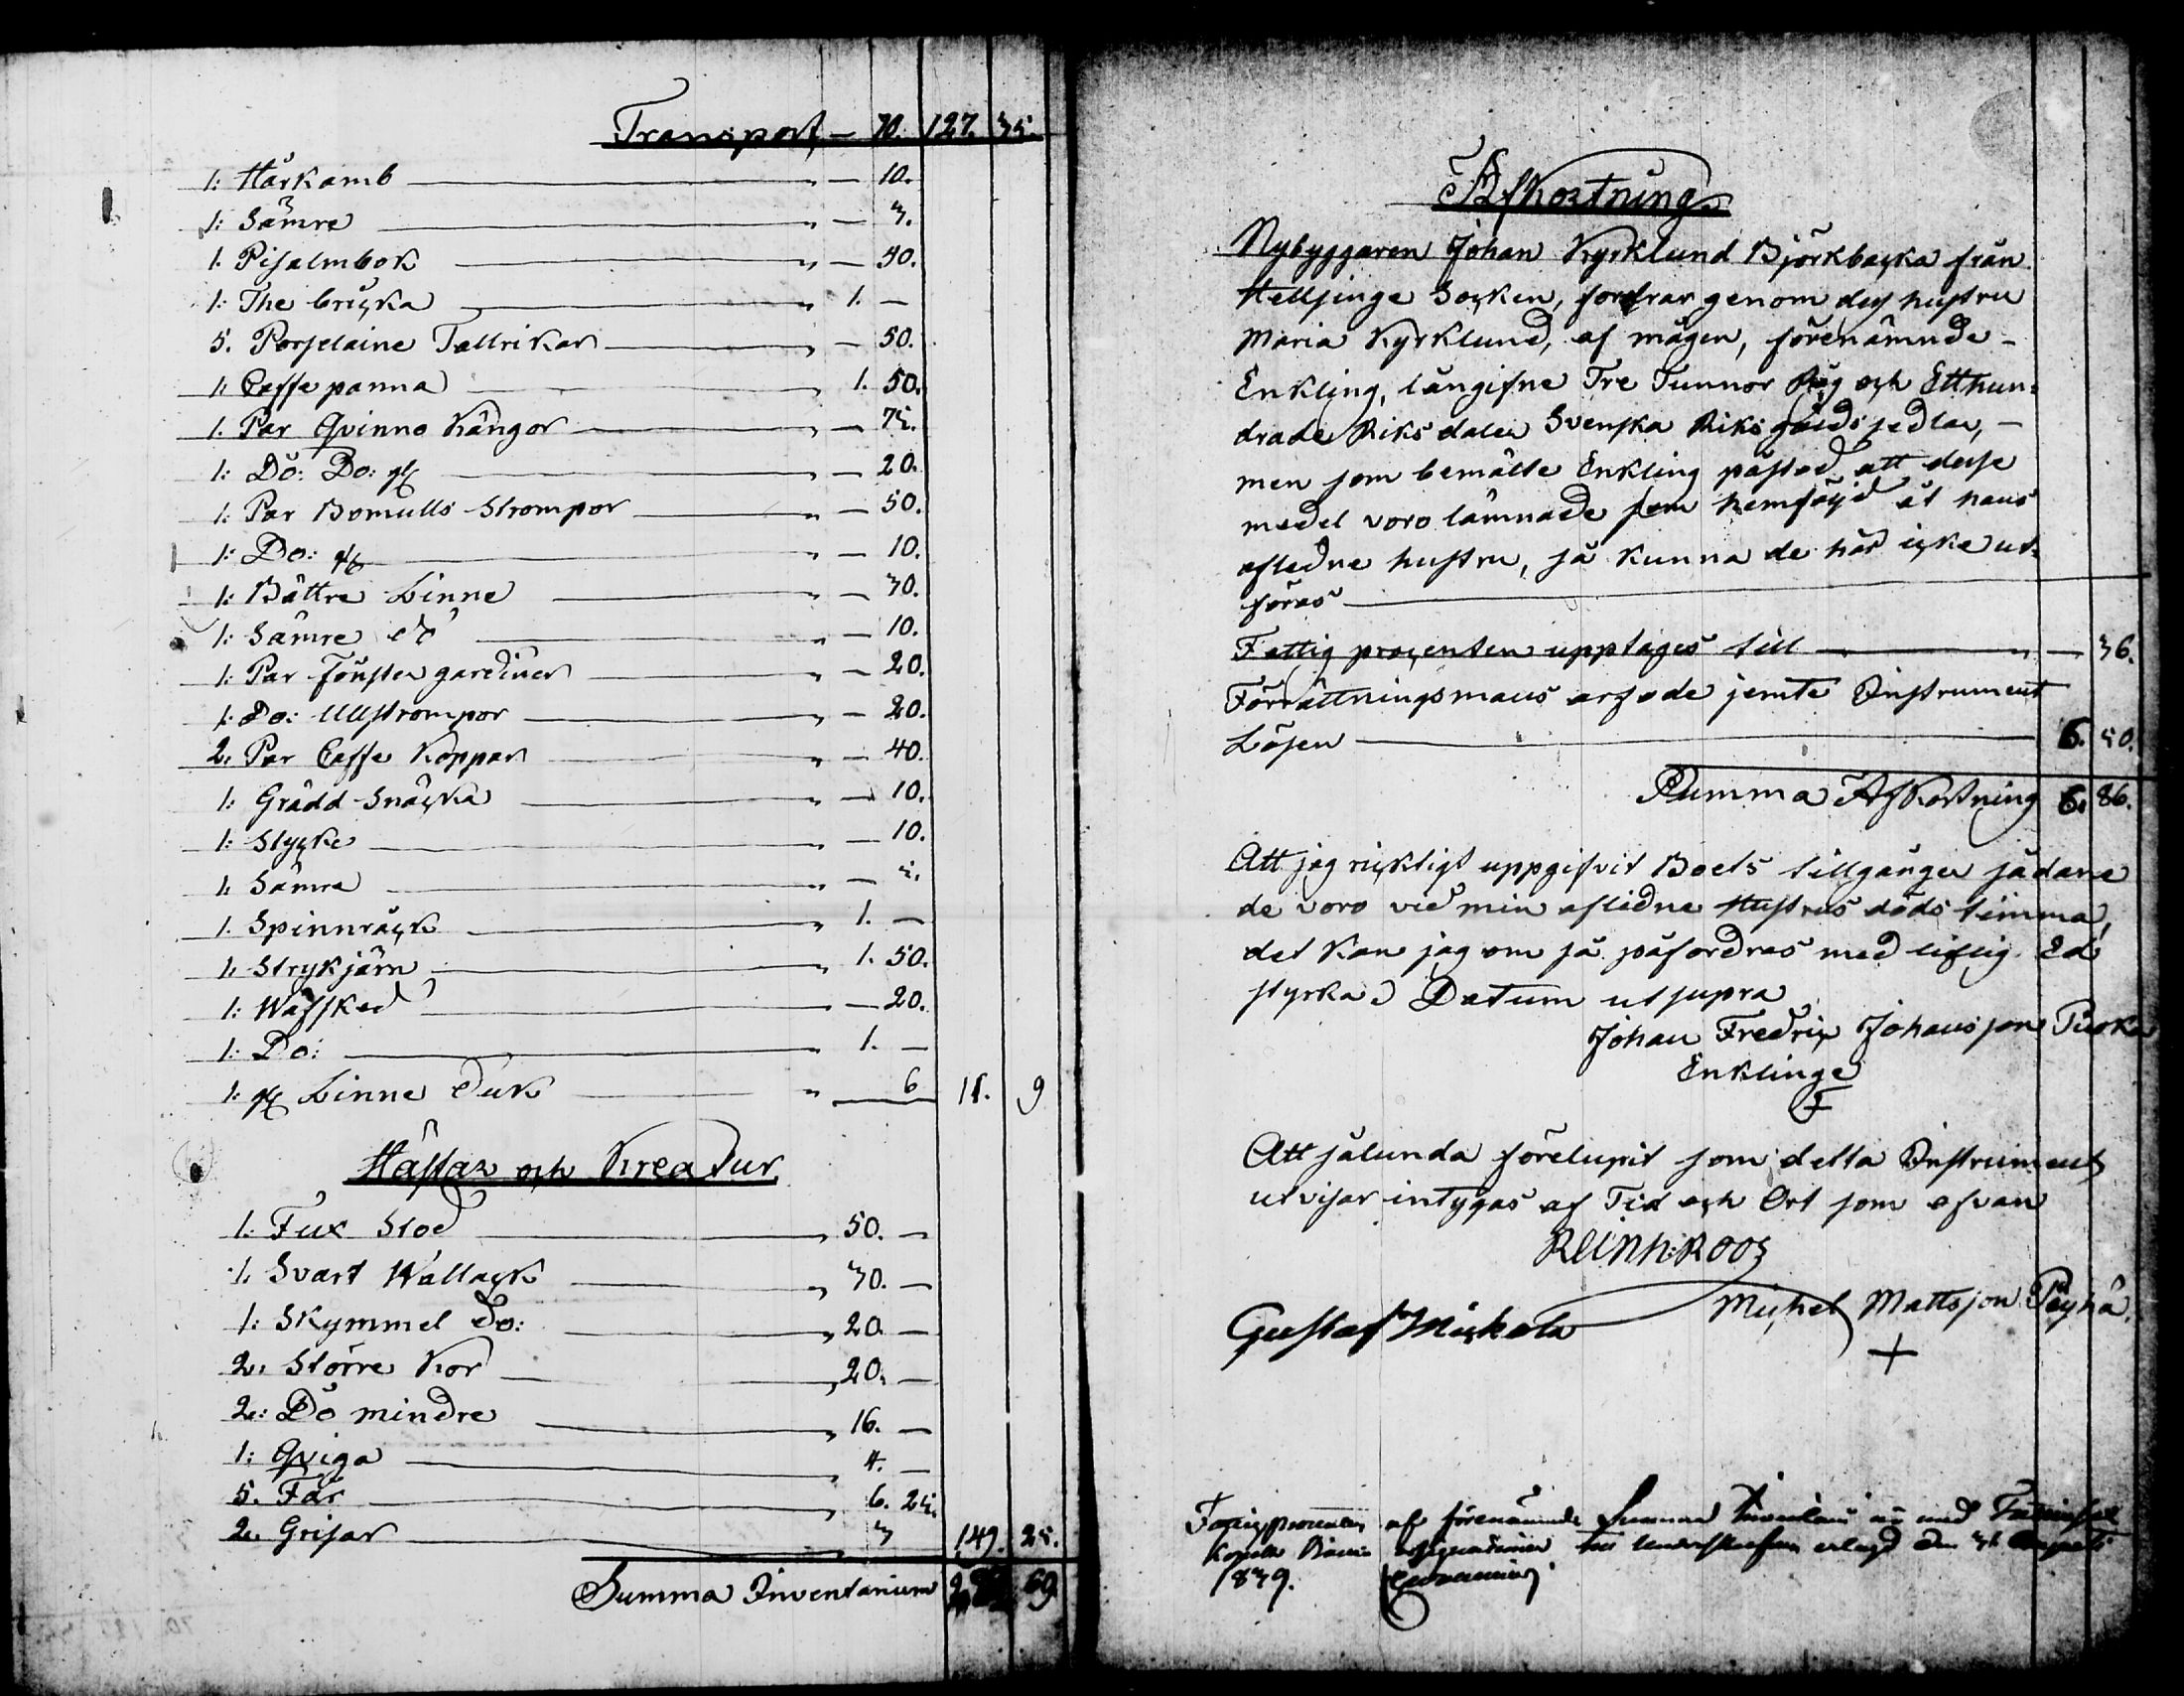 Transport — 70. 127. 35.
1: Hårkamb — 10.
1: Sämre — 3.
1. Psalmbok — 30.
1: The bricka 1. —
5. Porselaine Tallrikar — 50.
1: Caffe panna 1. 50.
1. Par Qvinno Kängor — 75.
1: Do: Do: — 20.
1: Par Bomulls Strømpor — 50.
1: Do: — 10.
1: Bättre Linne — 30.
1: Sämre do — 10.
1: Par Fönster gardiner — 20.
1: Do: Ullstrompor — 20.
2. Par Caffe Koppar — 40.
1: Grädd Snäcka — 10.
1: Stycke — 10.
1: Sämre — 5.
1. Spinnråck 1. —
1. Strykjärn 1. 50.
1: Wäfsked — 20.
1: Do: 1. —
1: Linne Duk 6 11. 9
Hästar och Kreatur.
1: Fux Stod 50. —
1. Svart Wallack 30. —
1: Skymmel Do: 20. —
2. Större Kor 20. —
2: Do mindre 16. —
1: Qviga 4. —
5. Får 6. 25.
2. Grisar 3 149. 25.
Summa Inventarium 69.
Afkortning
Nybyggaren Johan Kyrklund Björkbacka från
Helsinge Socken, fordrar genom dess hustru
Maria Kyrklund, af mågen, förenämnde
Enkling, långifne Tre Tunnor Råg och Etthun=
drade Riksdaler Svenska Riksgäldssedlar, —
men som bemälte Enkling påstod att desse
medel voro lämnade som hemföljd åt hans
afledne hustru, så kunna de här icke ut=
föras
Fattig procenten upptages till — 36.
Förrättningsmans arfvode jemte Instrument
Lösen 6. 50.
Summa Afkortning 6. 86.
Att jag ricktigt uppgifvit Boets tillgångar sådane
de voro vid min aflidne Hustrus döds timma,
det kan jag om så påfordras med liflig Ed
styrka Datum ut supra
Johan Fredric Johansson Puoka
Enkling
Att sålunda förelupit som detta Instrument
utvisar intygas af Tid och Ort som ofvan
Reinh: Roos
Michel Mattsson Peyhä
Gustaf Mickola
+
Fattigprocenten af förenämnde Summa Inventarii är med
till erlagd den
1839.